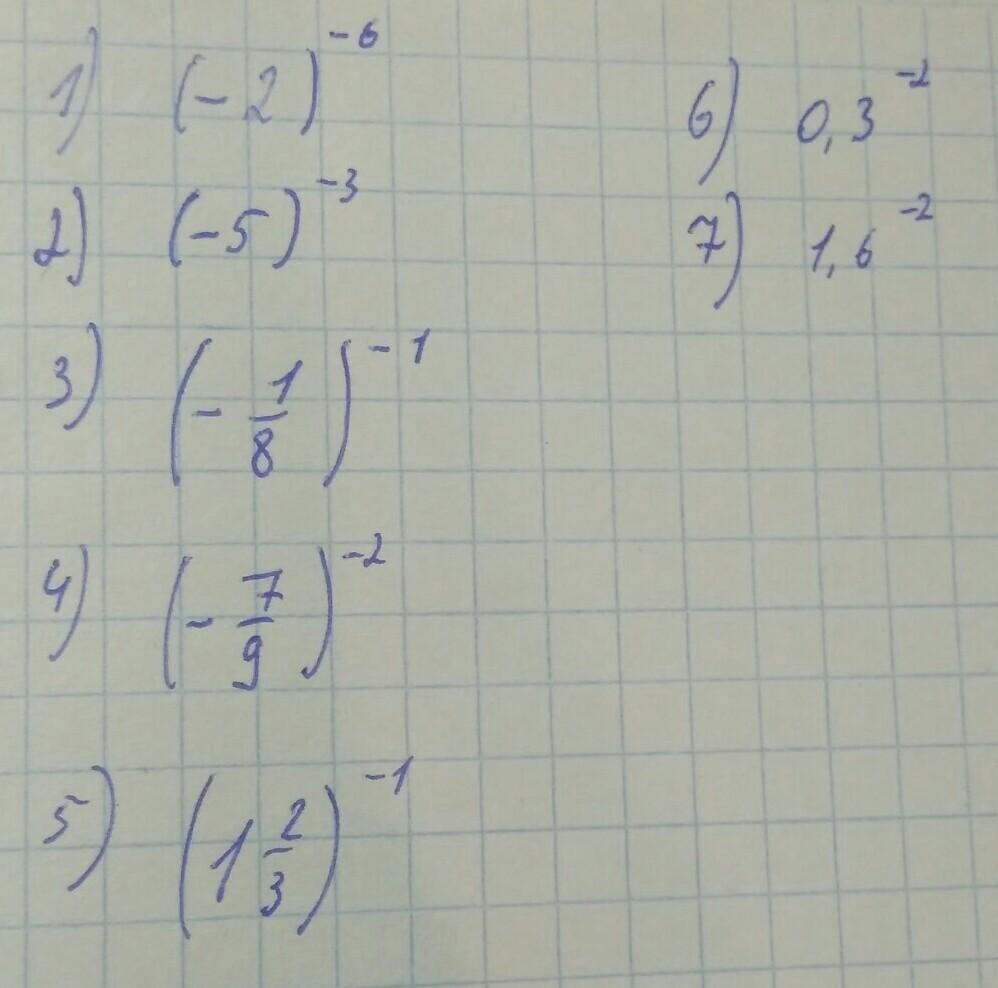 1) (-2)^-6
2) (-5)^-3
3) (- 1/8)^-1
4) (- 7/9)^-2
5) (1 2/3)^-1
6) 0,3^-2
7) 1,6^-2